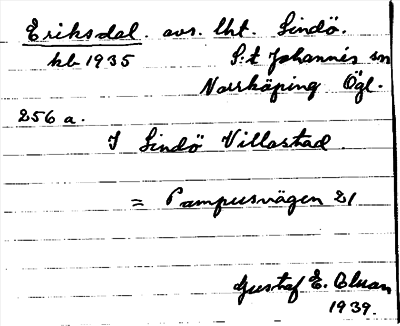 Eriksdal. avs. lht. Lindö.
kb 1935 S:t Johannis sn
Norrköping Ögl.
256 a.
I Lindö Villastad.
= Pampusvägen 21
Gustaf E.
1939.